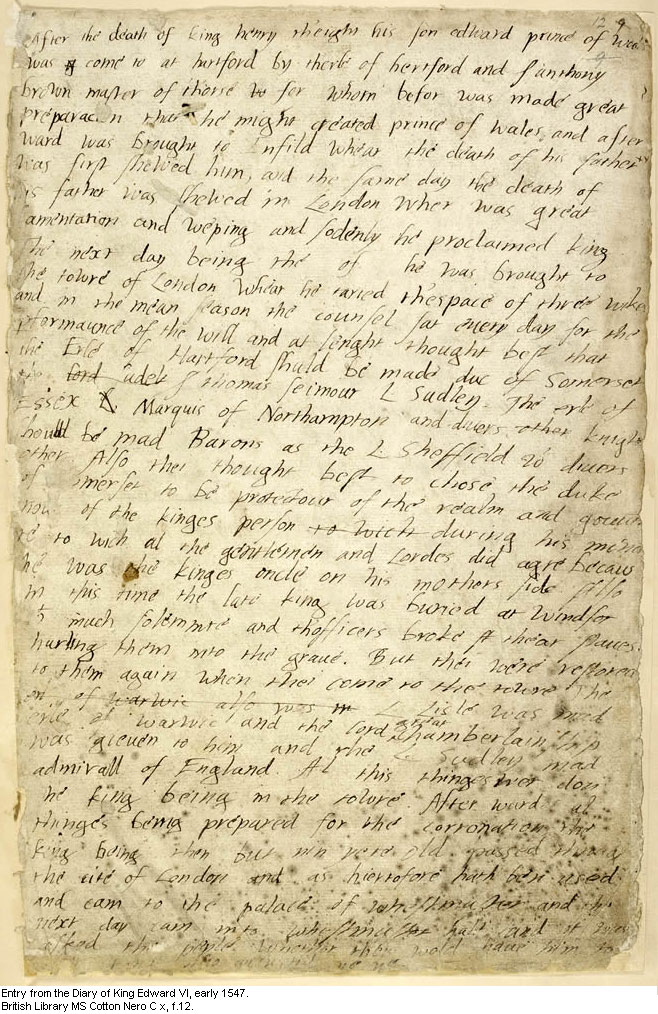 12 9
After the death of king henry th'eight his son edward prince of
was come to at hartford by th'erle of hertford and S anthony
brown master of th'orse for whom befor was made great
that he might created prince of wales, and after
ward was brought to Infild whear the death of his father
was first shewed him, and the same day the death of
is father was shewed in London wher was great
amentation and weping and sodenly he proclaimed king
The next day being the of he was brought to
the towre of London whear he taried th'espace of three
and in the mean season the counsel sat every day for the
performaunce of the will and at lenght thought best that
the Erle of Hartford shuld be made duc of Somerset
S thomas Seimour L Sudley. The erl of
Essex Marquis of Northampton and divers other knights
should be mad Barons as the L Sheffield divers
other Also thei thought best to chose the duke
of to be protectour of the realm and
of the kinges person to wich during his
to wich al the gentlemen and Lordes did agre becaus
he was the kinges oncle on his mothers side Also
in this time the late king was buried at Windsor
much solemnite and th'officers broke thear staves
hurling them into the grave. But thei were restored
to them again when thei come to the towre The
L Lisle was mad
erle of warwic and the lord great chamberlainship
was gieven to him and the L Sudley mad
admirall of England. Al this thinges wer don
the king being in the towre. After ward al
thinges being prepared for the corronation the
king being then but nin yere old passed
the cite of London and as hiertofore hath ben used
and cam to the palace of and the
next day cam into hal and it was
the people whether thei wold have him to
Entry from the Diary of King Edward VI, early 1547.
British Library MS Cotton Nero C x, f.12.